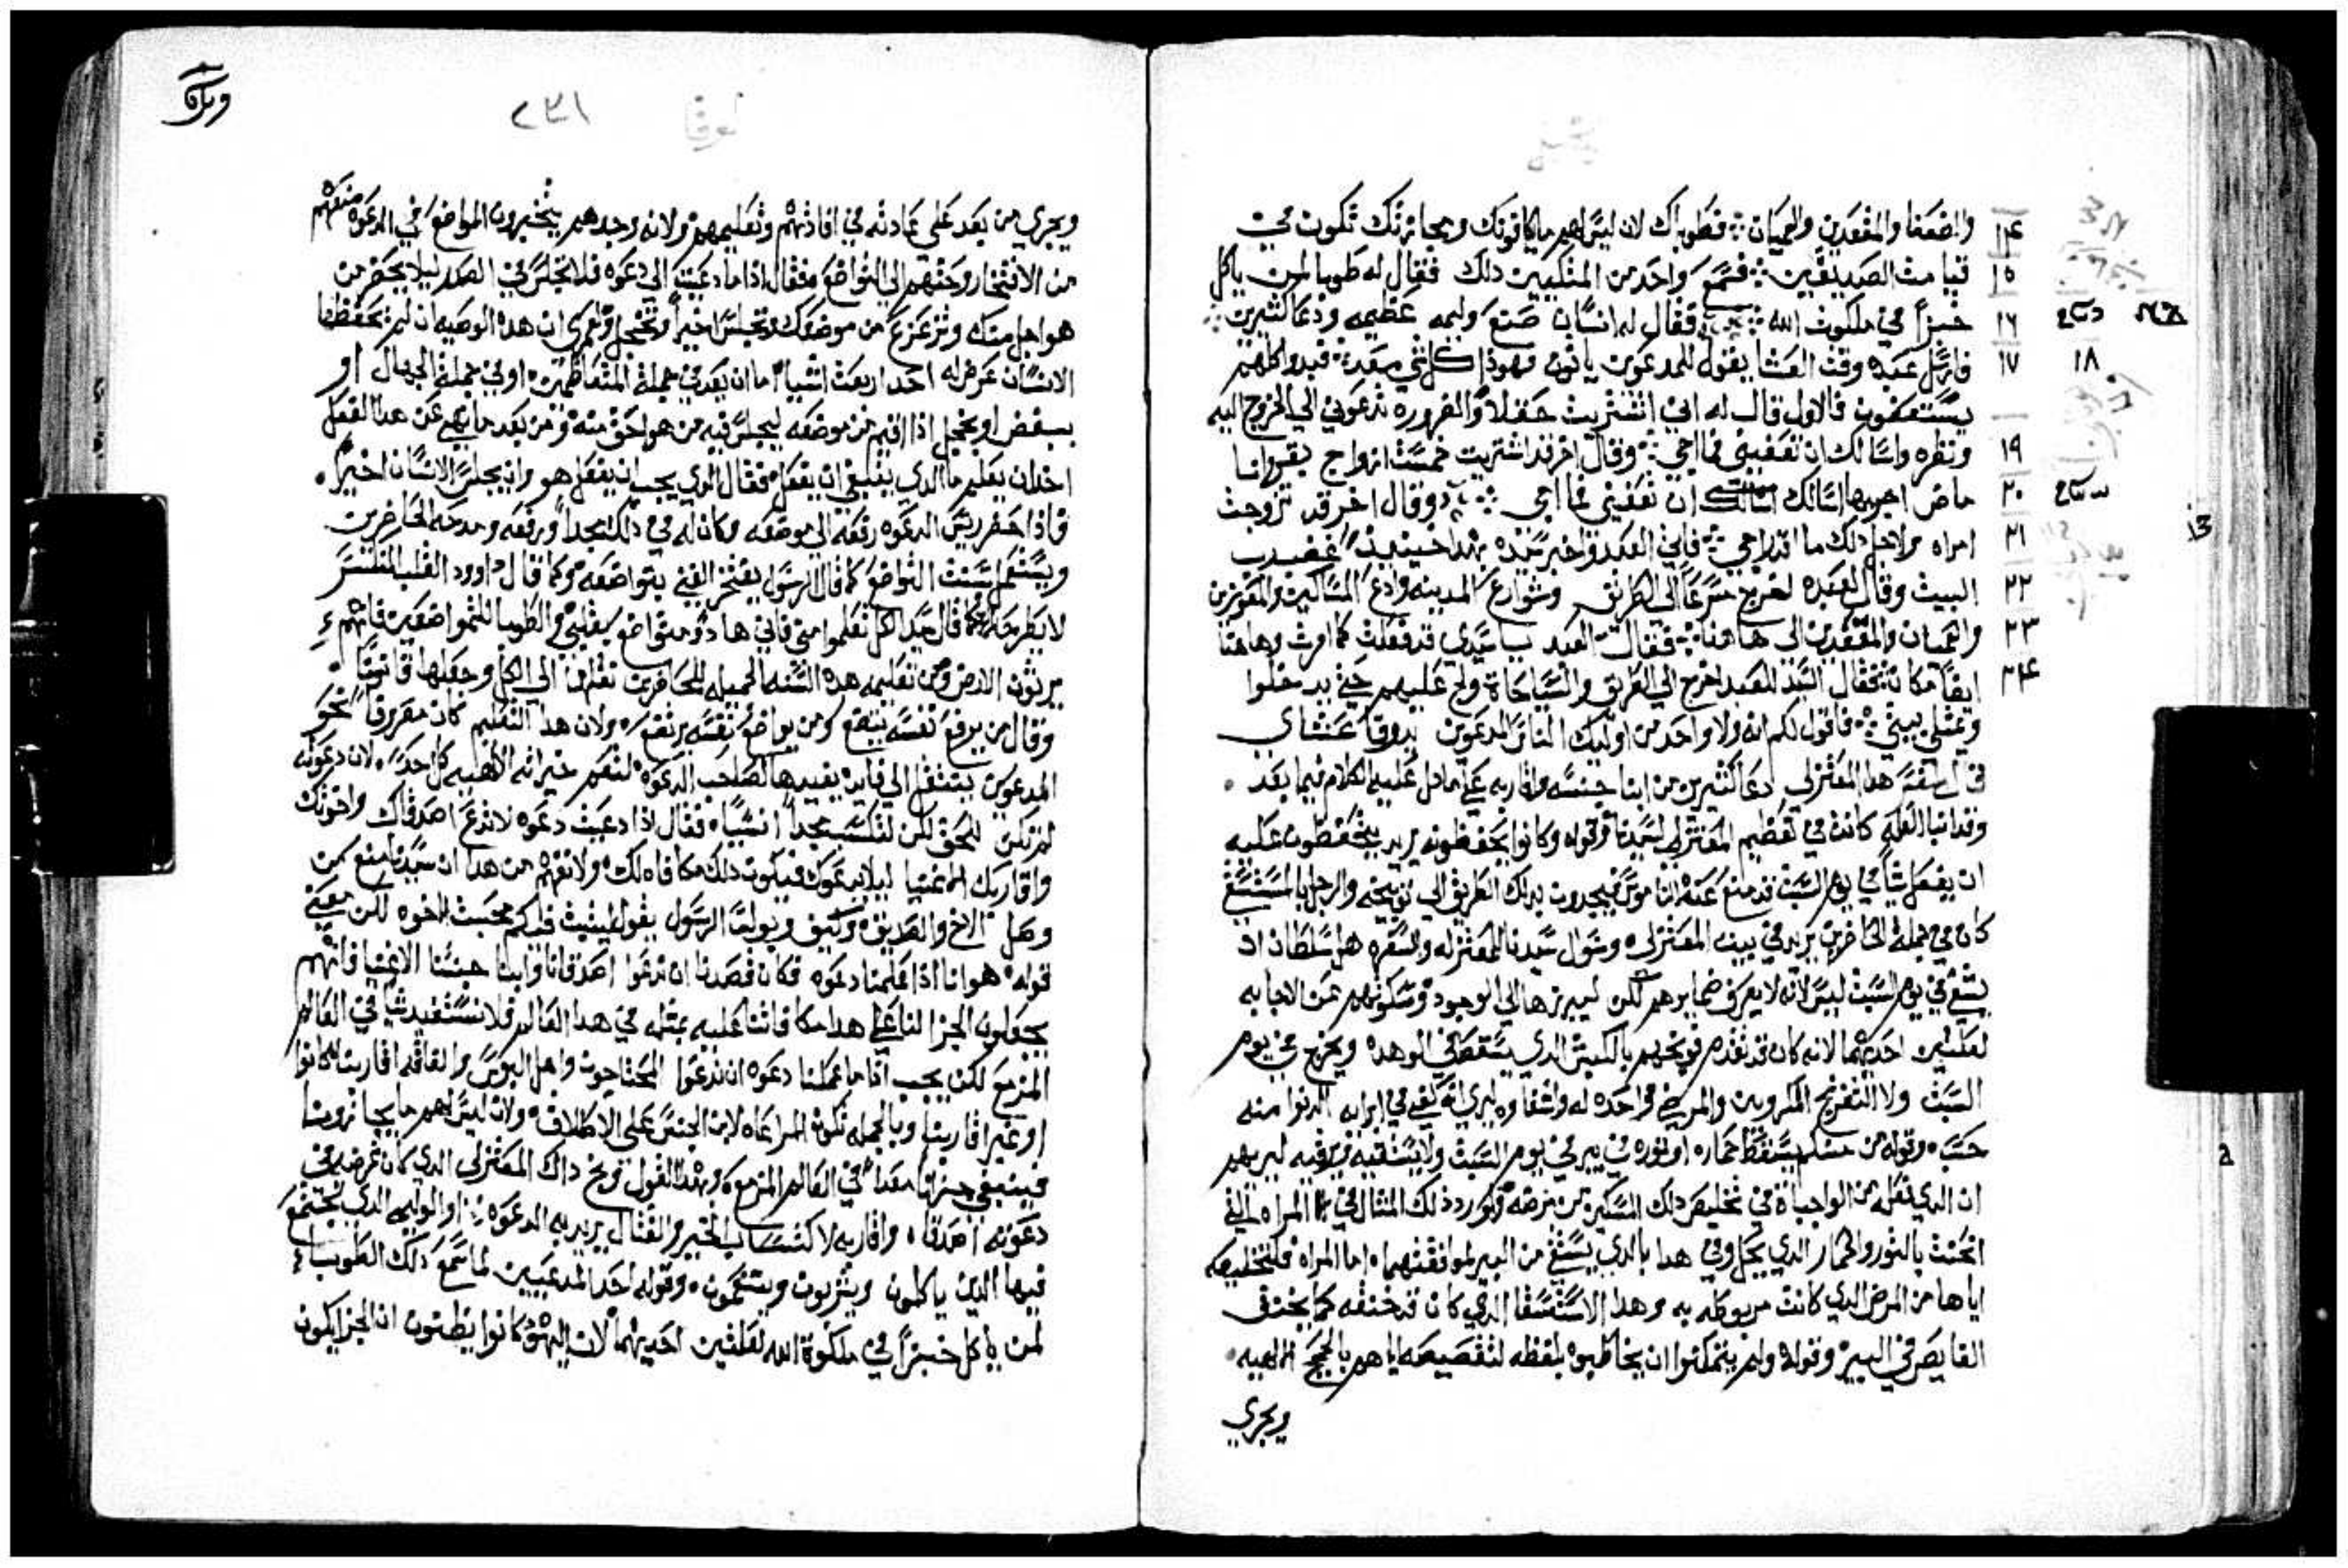 والضعفا والمقعدين والعميان فطوباك لان ليس لهم ما يكافونك ومجازتك تكون في ١٤
قيامت الصديقين فسمع واحد من المتكيين دلك فقال له طوبا لمن ياكل ١٥
خبزاً في ملكوت الله فقال له انسان صنع وليمه عظيمه ودعا كثيرين ١٦
فارسل عبده وقت العشا يقول للمدعوين ياتون فهودا كل شي معد فبدوا كلهم ١٧ ١٨
يستعفون فالاول قال له اني اشتريت حقلاً والضروره تدعوني الي الخروج اليه
ونظره واسالك ان تعفيني فما اجي وقال اخر قد اشتريت خمست ازواج بقر وانا ١٩
ماض اجربها اسالك ان تعفيني فما اجي وقال اخر قد تزوجت ٢٠
امراه ولاجل دلك ما اقدر اجي فاتي العبد واخبر سيده بهدا حينيد غضب رب ٢١
البيت وقال لعبده اخرج مسرعاً الي الطريق وشوارع المدينه وادع المساكين والمعوزين ٢٢
والعميان والمقعدين الى هاهنا فقال العبد يا سيدي قد فعلت كما امرت وهاهنا ٢٣
ايضاً مكان فقال السيد للعبد اخرج الي الطريق والسياجاة ولج عليهم حتي يدخلوا ٢٤
ويمتلي بيتي فاقول لكم انه ولا واحد من اوليك الناس المدعوين يدوق عشاي
هدا المعتزلي دعا كثيرين من ابنا جنسه واقاربه علي ما دل عليه الكلام فيما بعد
كانت في تعظيم المعتزلي لسيدنا وقوله وكانوا يحفظونه يريد يتحفظون عليه
ان يفعل شياً في يوم السبت قد منع عنه الناموس فيجدون بدلك الطريق الي توبيخه والرجل المستسقي
كان في جملة الحاضرين يريد في بيت المعتزلي وسوال سيدنا للمعتزله والسفره هل سلطان ان
يشفي في يوم السبت ليس لانه لا يعرف ضمايرهم لكن ليبرزها الي الوجود وسكوتهم عن الاجابه
لعلتين احديهما لانه كان قد تقدم توبيخهم بالكبش الدي يسقط في الوهده ويخرج في يوم
السبت
حسب وقوله من منكم يسقط حماره او ثوره في بير في يوم السبت ولا يستقيه ويرقيه ليريهم
ان الدي فعله من الواجباة في تخليص دلك المسكين من مرضه ولم يورد دلك المثال في المراه التي
انحنت بالثور والحمار الدي يحل وفي هدا بالدي يستقي من البير لموافقتهما اما المراه فلتخليصه
اياها من المرض الدي كانت مربوطه به وهدا الاستسقا الدي كان قد خنقه كما يختنق
الغايص في البير وقوله ولم يتمكنوا ان يخاطبوه بلفظه لتفصيصه اياهم بالحجج الالهيه
ويجري
لوقا ٢٣١
ويجري من بعد علي عادته في افادتهم وتعليمهم ولانه وجدهم يتخيرون المواضع في الدعوه منعهم
من الافتخار وحثهم الي التواضع فقال ادا ما دعيت الي دعوه فلا تجلس في الصدر ليلا يحضر من
هو اجل منك وتزعزع من موضعك وتجلس اخيراً وتخجل ولعمري ان هده الوصيه ان لم يحفظها
الانسان عرض له احد اربعت اشيا اما ان يعد في جملة المتعاظمين او في جملة الجهال او
يبغض او يخجل ادا اقيم من موضعه ليجلس فيه من هو احق منه ومن بعد ما نهي عن هدا الفعل
اخد ان يعلم ما الدي ينبغي ان يفعل فقال الدي يجب ان يفعل هو وان يجلس الانسان اخيراً
فادا حضر رييس الدعوه رفعه الي موضعه وكان له في دلك مجداً ورفعه ومدحه الحاضرين
ويستعمل سنت التواضع كما قال الرسول يفتخر الغني بتواضعه وكما قال داوود القلب المنكسر
لا يطرحه الله كما قال سيد الكل تعلموا مني فاني هادو ومتواضع بقلبي والطوبا للمتواضعين فانهم
يرثون الارض ومن تعليمه هده السنه الجميله للحاضرين نقلها الي الكل وجعلها قانوناً
وقال من يرفع نفسه يتضع ومن يواضع نفسه يرتفع ولان هدا التعليم كان مصروفاً نحو
المدعوين ينتقل الي فايده يفيدها لصاحب الدعوه لتعم خيراته الالهيه كل احد لان دعوته
لم تكن للحق لكن لتكسب مجداً انسياً فقال ادا دعيت دعوه لا تدع اصدقاك واخوتك
واقاربك الاغنيا ليلا يدعوك فيكون دلك مكافاه لك ولا تفهم من هدا ان سيدنا منع من
وصل الاخ والصديق وكيف وبولس الرسول يقول ليثبت فيكم محبت الاخوه لكن معني
قوله هو اننا ادا عملنا دعوه فكان قصدنا ان ندعوا اصدقانا وابنا جنسنا الاغنيا فانهم
يجعلون الجزا لنا علي هدا مكافاتنا عليه بمثله في هدا العالم فلا نستفيد شياً في العالم
المزمع لكن يجب ادا ما عملنا دعوه ان ندعوا المحتاجون واهل البوس والفاقه اقاربنا كانوا
او غير اقاربنا وبالجمله تكون المراعاه لابن الجنس علي الاطلاق ولان ليس لهم ما يجازونا
فيبقي جزانا معداً في العالم المزمع وبهدا القول توبخ داك المعتزلي الدي كان غرضه في
دعوته اصدقاه واقاربه لاكتساب الخير والقتال يريد به الدعوه او الوليمه الدي تجتمع
فيها الدين ياكلون ويشربون ويتنعمون وقوله احد المدعيين لما سمع دلك الطوباء
لمن ياكل خبزاً في ملكوة الله لعلتين احديهما لان اليهود كانوا يظنون ان الجزا يكون